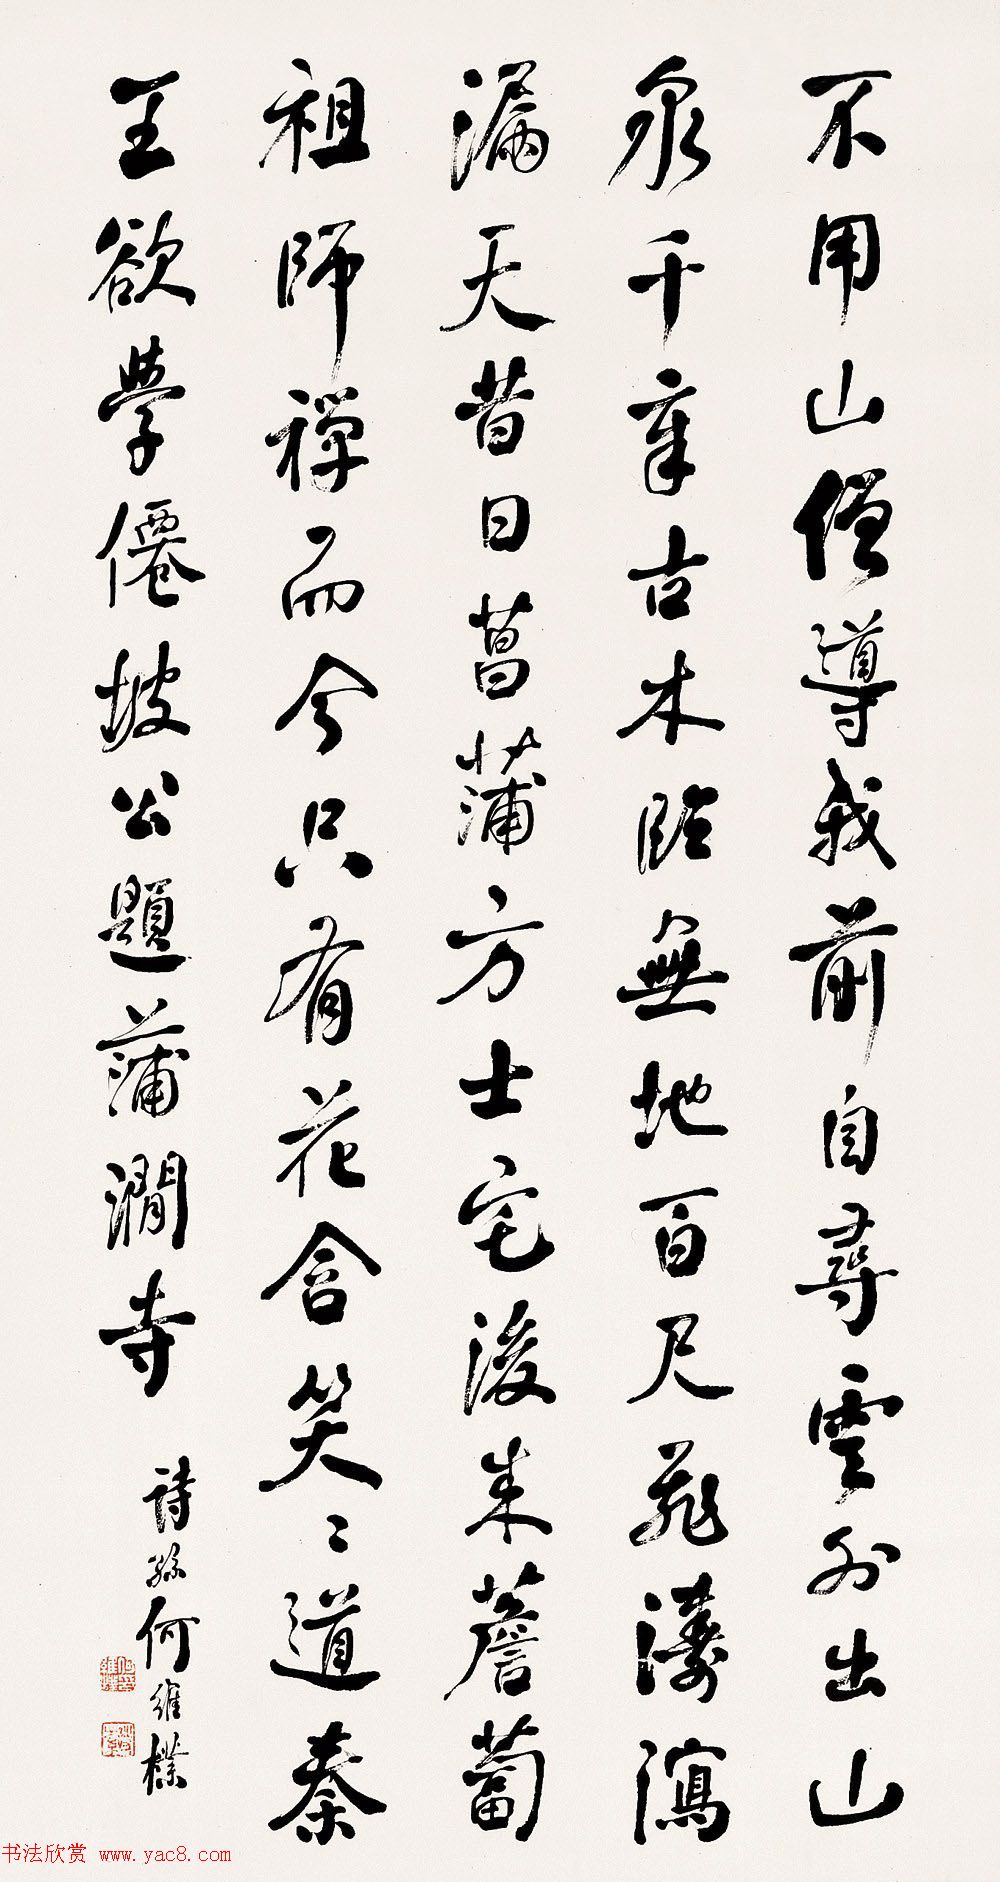 不用山僧導我前自尋雲外出山
泉千章古木臨無地百尺飛濤瀉
漏天昔日菖蒲方士宅後来薝蔔
祖師禪而今只有花含笑〻道秦
王欲學僊坡公題蒲澗寺
詩孫何維樸
书法欣赏 www.yac8.com